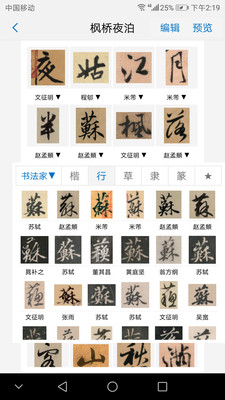 中国移动 25% 下午2:19
枫桥夜泊 编辑 预览
夜 姑 江 月
文征明▼ 程郇▼ 米芾▼ 米芾▼
半 蘇 楓 落
赵孟頫▼ 赵孟頫▼ 文征明▼ 赵孟頫▼
书法家▼ 楷 行 草 隶 篆 ★
蘇 蘇 蘇 蘇 蘇 蘇
苏轼 米芾 米芾 苏轼 赵孟頫 赵孟頫
蘇 蘇 蘇 蘇 蘇 蘇
苏轼 董其昌 黄庭坚 翁方纲 苏轼
蘇 蘇 蘇 蘇 蘇 蘇
文征明 张雨 苏轼 苏轼 文征明 吴宽
客 山 秋 满